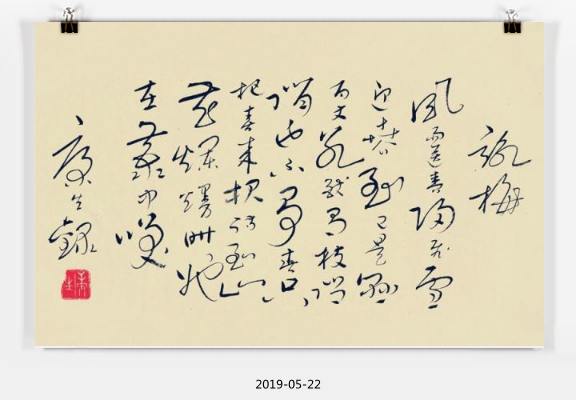 詠梅
風雨送春歸飛雪
迎春到已是懸崖
百丈冰猶有花枝俏
俏也不爭春只
把春來报待到山
花爛熳時她
在叢中笑
康生錄
2019-05-22